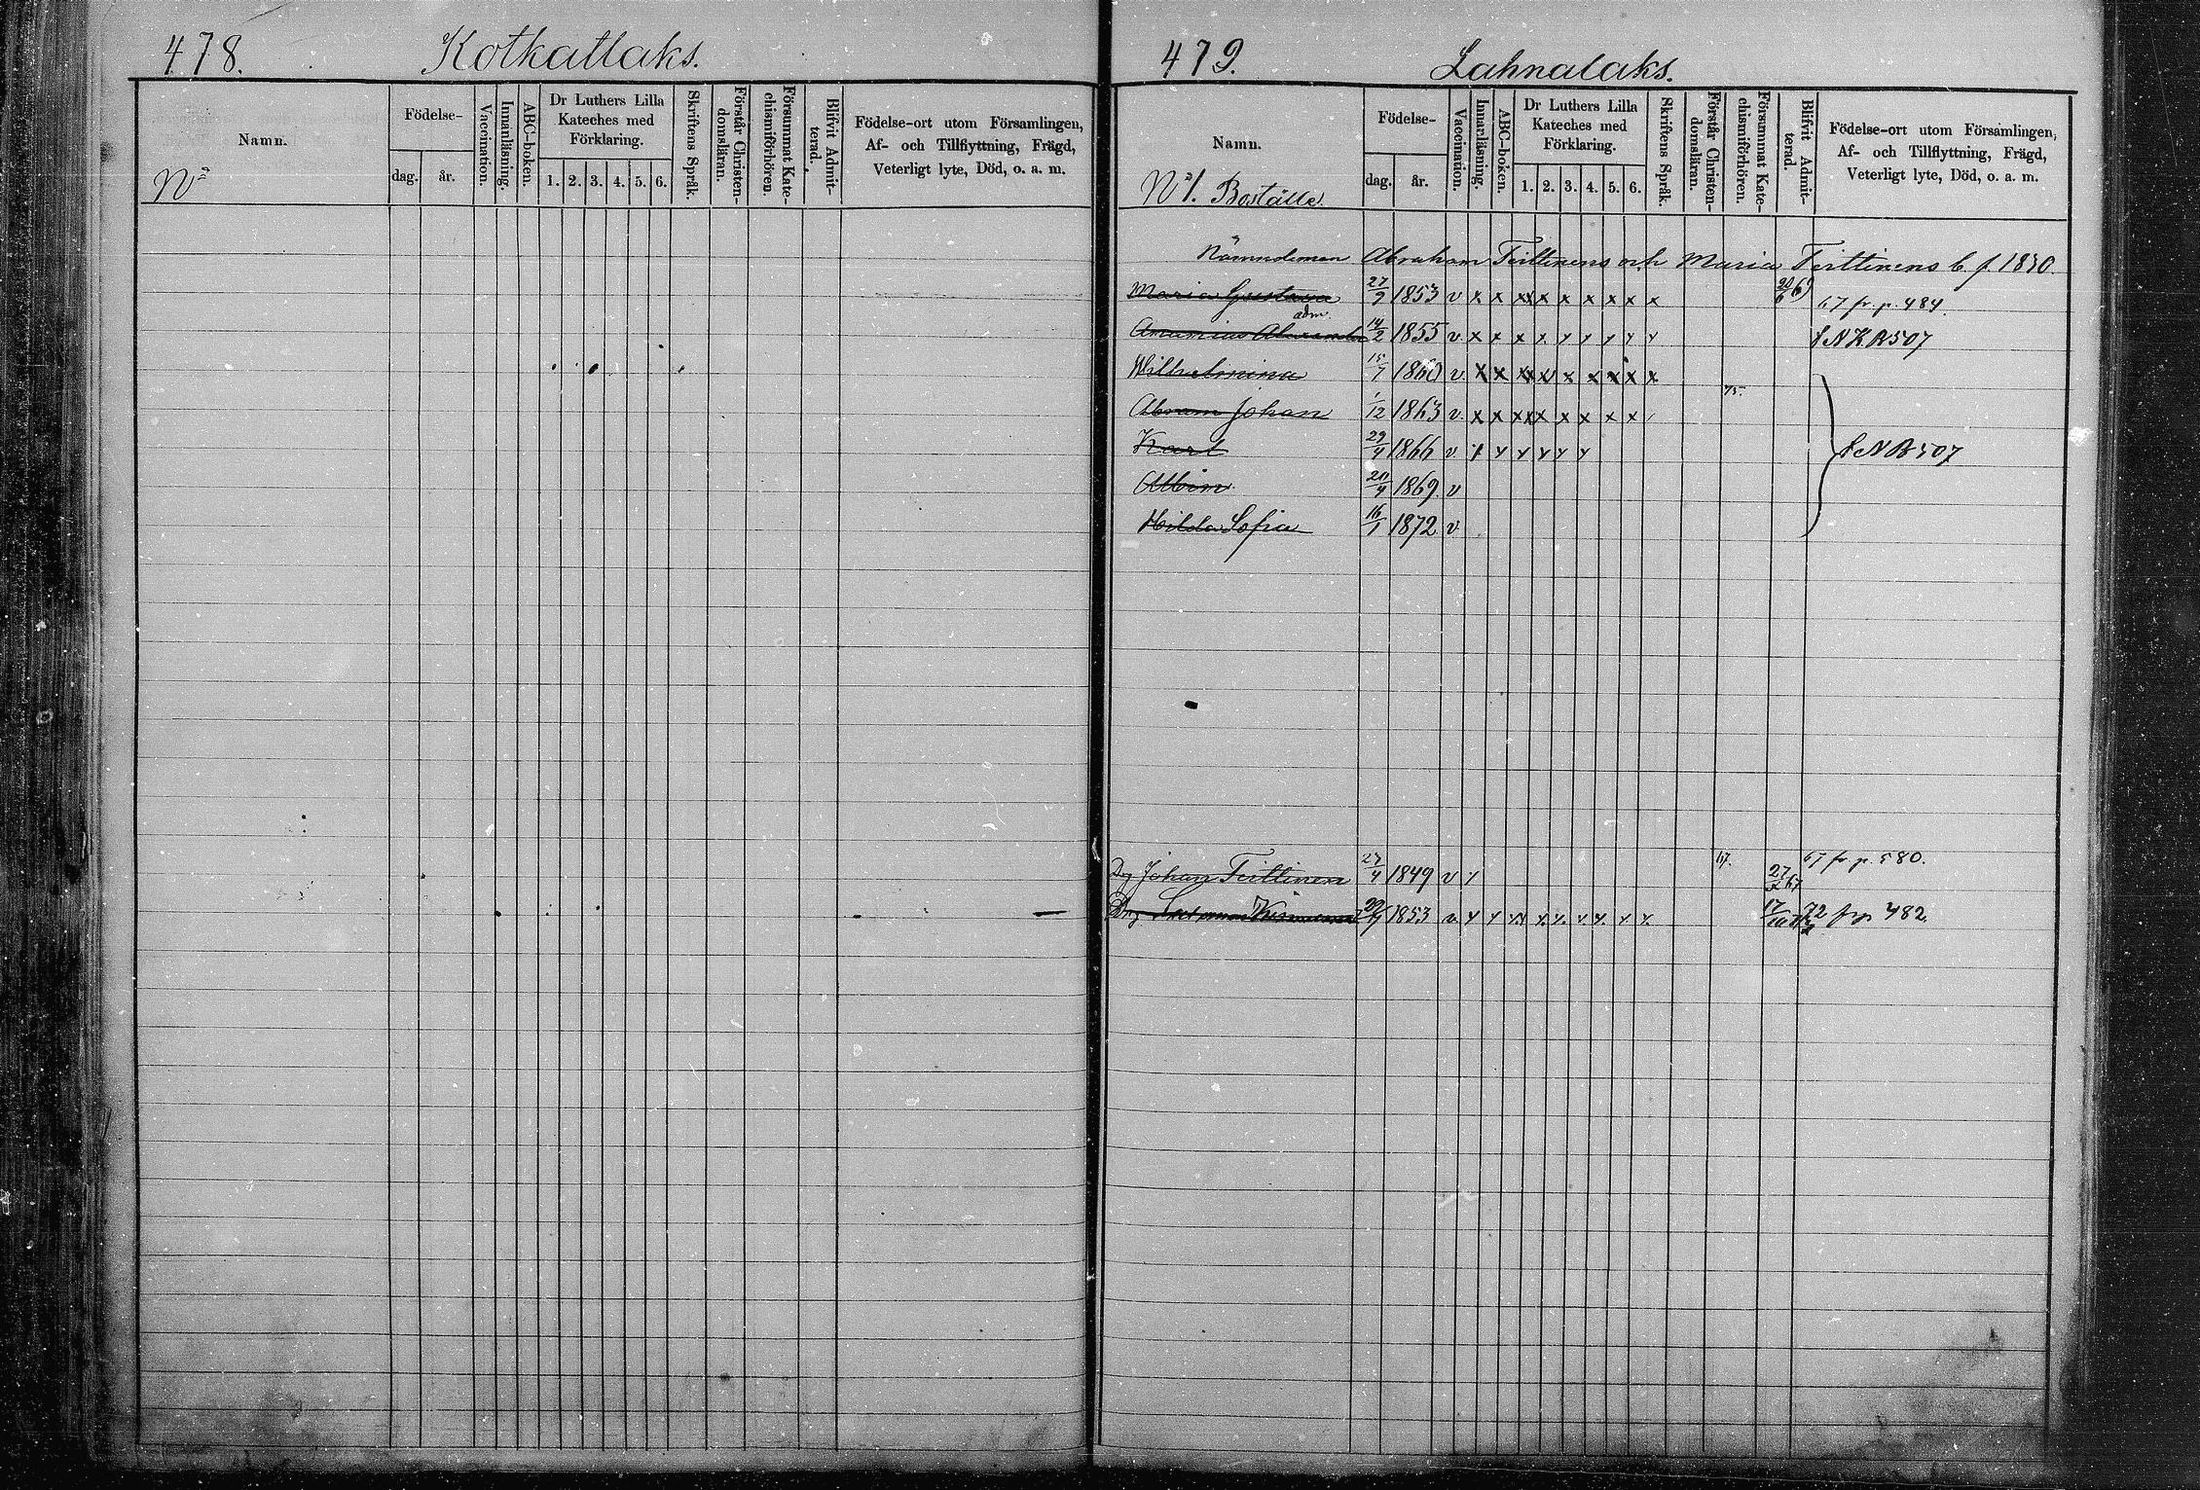 478. Kotkatlaks.
Namn.
Nº
Födelse-
dag.
år.
Vaccination.
Innanläsning.
ABC-boken.
Dr Luthers Lilla
Kateches med
Förklaring.
1. 2. 3. 4. 5. 6.
Skriftens Språk.
Förstår Christen-
domsläran.
Försummat Kate-
chismiförhören.
Blifvit Admit-
terad.
Födelse-ort utom Församlingen,
Af- och Tillflyttning, Frägd,
Veterligt lyte, Död, o. a. m.
479. Lahnalaks.
Namn.
Nº 1. Boställe.
Födelse-
dag.
år.
Vaccination.
Innanläsning.
ABC-boken.
Dr Luthers Lilla
Kateches med
Förklaring.
1. 2. 3. 4. 5. 6.
Skriftens Språk.
Förstår Christen-
domsläran.
Försummat Kate-
chismiförhören.
Blifvit Admit-
terad.
Födelse-ort utom Församlingen,
Af- och Tillflyttning, Frägd,
Veterligt lyte, Död, o. a. m.
Nämndeman Abraham Teittinens och Maria Teittinens b. f. 1830.
Maria Gustava 27/9 1853 v x x x x x x x x x x 67 fr. p. 484.
adm.
14/2 1855 v x x x x x x x x x
Wilhelmina 15/7 1860 v x x x x x x x x x
75.
Abram Johan 1/12 1863 v x x x x x x x x
Karl 29/4 1866 v x x x x x x N B 507
Albin 1869 v
Hilda Sofia 16/1 1872 v
67. 67 fr p. 580.
Dg Johan Teittinen 27/4 1849 v 27/5 67
1853 v x x x x x x x x x 72 fr p 482.